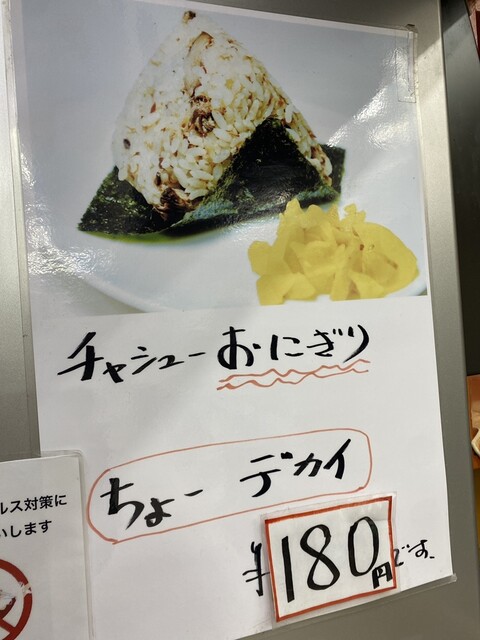 チャシューおにぎり
ちょー デカイ
¥180円です。
ルス対策に
いします